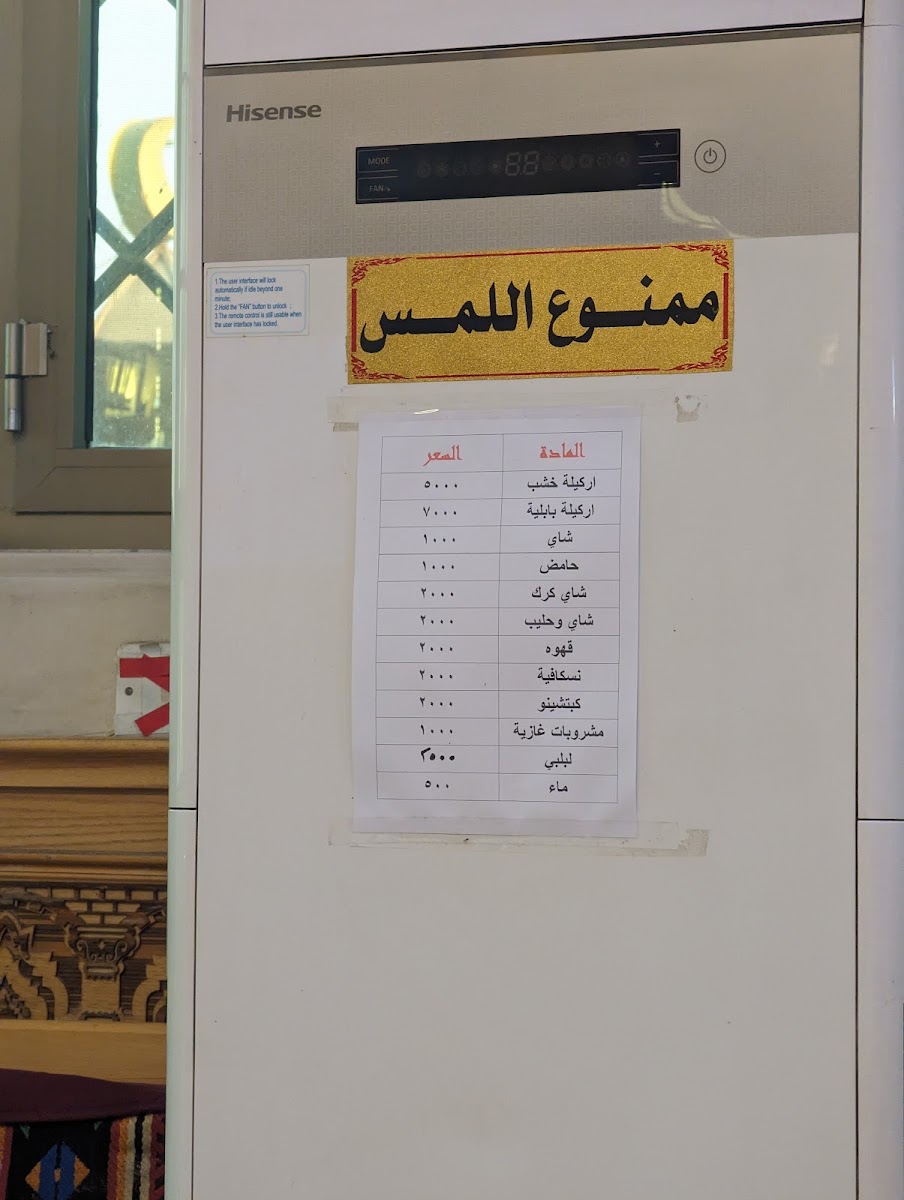 Hisense
MODE
FAN
+
-
1.The user interface will lock
automatically if idle beyond one
minute;
2.Hold the "FAN" button to unlock ;
3.The remote control is still usable when
the user interface has locked.
ممنوع اللمس
المادة السعر
اركيلة خشب ٥٠٠٠
اركيلة بابلية ٧٠٠٠
شاي ١٠٠٠
حامض ١٠٠٠
شاي كرك ٢٠٠٠
شاي وحليب ٢٠٠٠
قهوه ٢٠٠٠
نسكافية ٢٠٠٠
كبتشينو ٢٠٠٠
مشروبات غازية ١٠٠٠
لبلبي ٢٥٠٠
ماء ٥٠٠